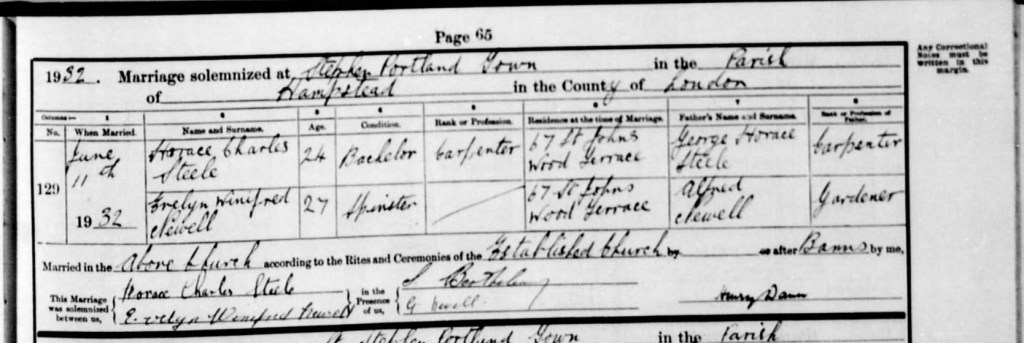 Page 65
Any Correctional
Notes must be
written in this
margin.
1932. Marriage solemnized at St Stephen Portland Town in the Parish
of Hampstead in the County of London
Columns:— 1 2 3 4 5 6 7 8
No. When Married. Name and Surname. Age. Condition. Rank or Profession. Residence at the time of Marriage. Father's Name and Surname. Rank or Profession of Father.
129 June 11th 1932 Horace Charles Steele 24 Bachelor Carpenter 67 St Johns Wood Terrace George Horace Steele Carpenter
Evelyn Winifred Newell 27 Spinster 67 St Johns Wood Terrace Alfred Newell Gardener
Married in the above Church according to the Rites and Ceremonies of the Established Church by or after Banns by me,
This Marriage was solemnized between us, Horace Charles Steele in the Presence of us,
Evelyn Winifred Newell G Newell Henry
St Stephen Portland Town in the Parish